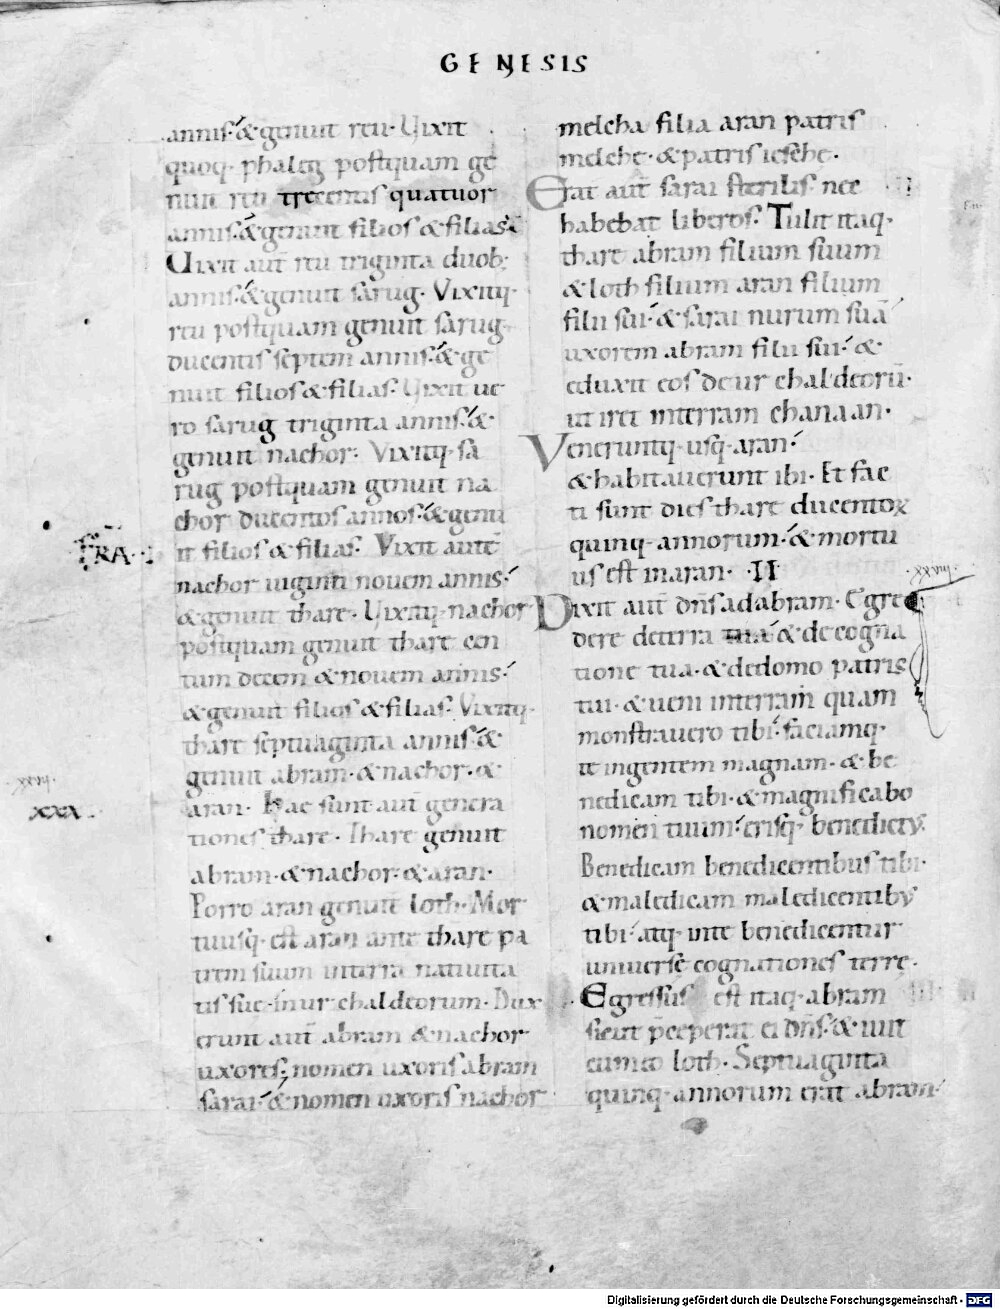 GENESIS
annis. & genuit reu. Vixit
quoq. phaleg postquam ge
nuit reu trecentis quatuor
annis. & genuit filios & filias.
Uixit aut reu triginta duob;
annis. & genuit sarug. Vixitq.
reu postquam genuit sarug
ducentis septem annis. & ge
nuit filios & filias. Uixit ue
ro sarug triginta annis. &
genuit nachor. Vixitq. sa
rug postquam genuit na
chor ducentos annos. & genu
it filios & filias. Vixit aute
FRA
nachor uiginti nouem annis.
& genuit thare. Uixitq. nachor
postquam genuit thare cen
tum decem & nouem annis.
& genuit filios & filias. Vixitq.
thare septuaginta annis. &
genuit abram. & nachor. &
xxviii.
xxx.
aran. Hae sunt aut genera
tiones thare. Thare genuit
abram. & nachor. & aran.
Porro aran genuit loth. Mor
tuusq. est aran ante thare pa
trem suum in terra natiuita
tis suę. in ur chaldeorum. Dux
erunt aut abram & nachor
uxores; nomen uxoris abram
sarai. & nomen uxoris nachor
melcha filia aran patris
melche. & patris ieschę.
Erat aut sarai sterilis nec
habebat liberos. Tulit itaq.
thare abram filium suum
& loth filium aran filium
filii sui. & sarai nurum suā
uxorem abram filii sui. &
eduxit eos de ur chaldeorū.
ut iret in terram chanaan.
Veneruntq. usq. aran.
& habitauerunt ibi. Et fac
ti sunt dies thare ducentoꝝ
quinq. annorum. & mortu
us est in aran. II
Dixit aut dns ad abram. Egre
dere de terra tua. & de cogna
tione tua. & de domo patris
tui. & ueni in terram quam
monstrauero tibi. faciamq.
te in gentem magnam. & be
nedicam tibi. & magnificabo
nomen tuum. erisq. benedictus.
Benedicam benedicentibus tibi.
& maledicam maledicentibus
tibi. atq. in te benedicentur
uniuersę cognationes terrę.
Egressus est itaq. abram
sicut pceperat ei dns. & iuit
cum eo loth. Septuaginta
quinq. annorum erat abram.
Digitalisierung gefördert durch die Deutsche Forschungsgemeinschaft - DFG